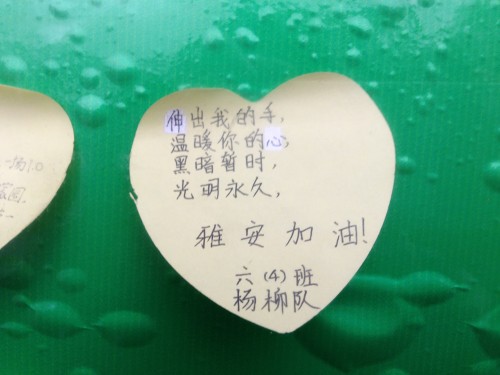 伸出我的手,
温暖你的心,
黑暗暂时,
光明永久,
雅安加油!
六(4)班
杨柳队